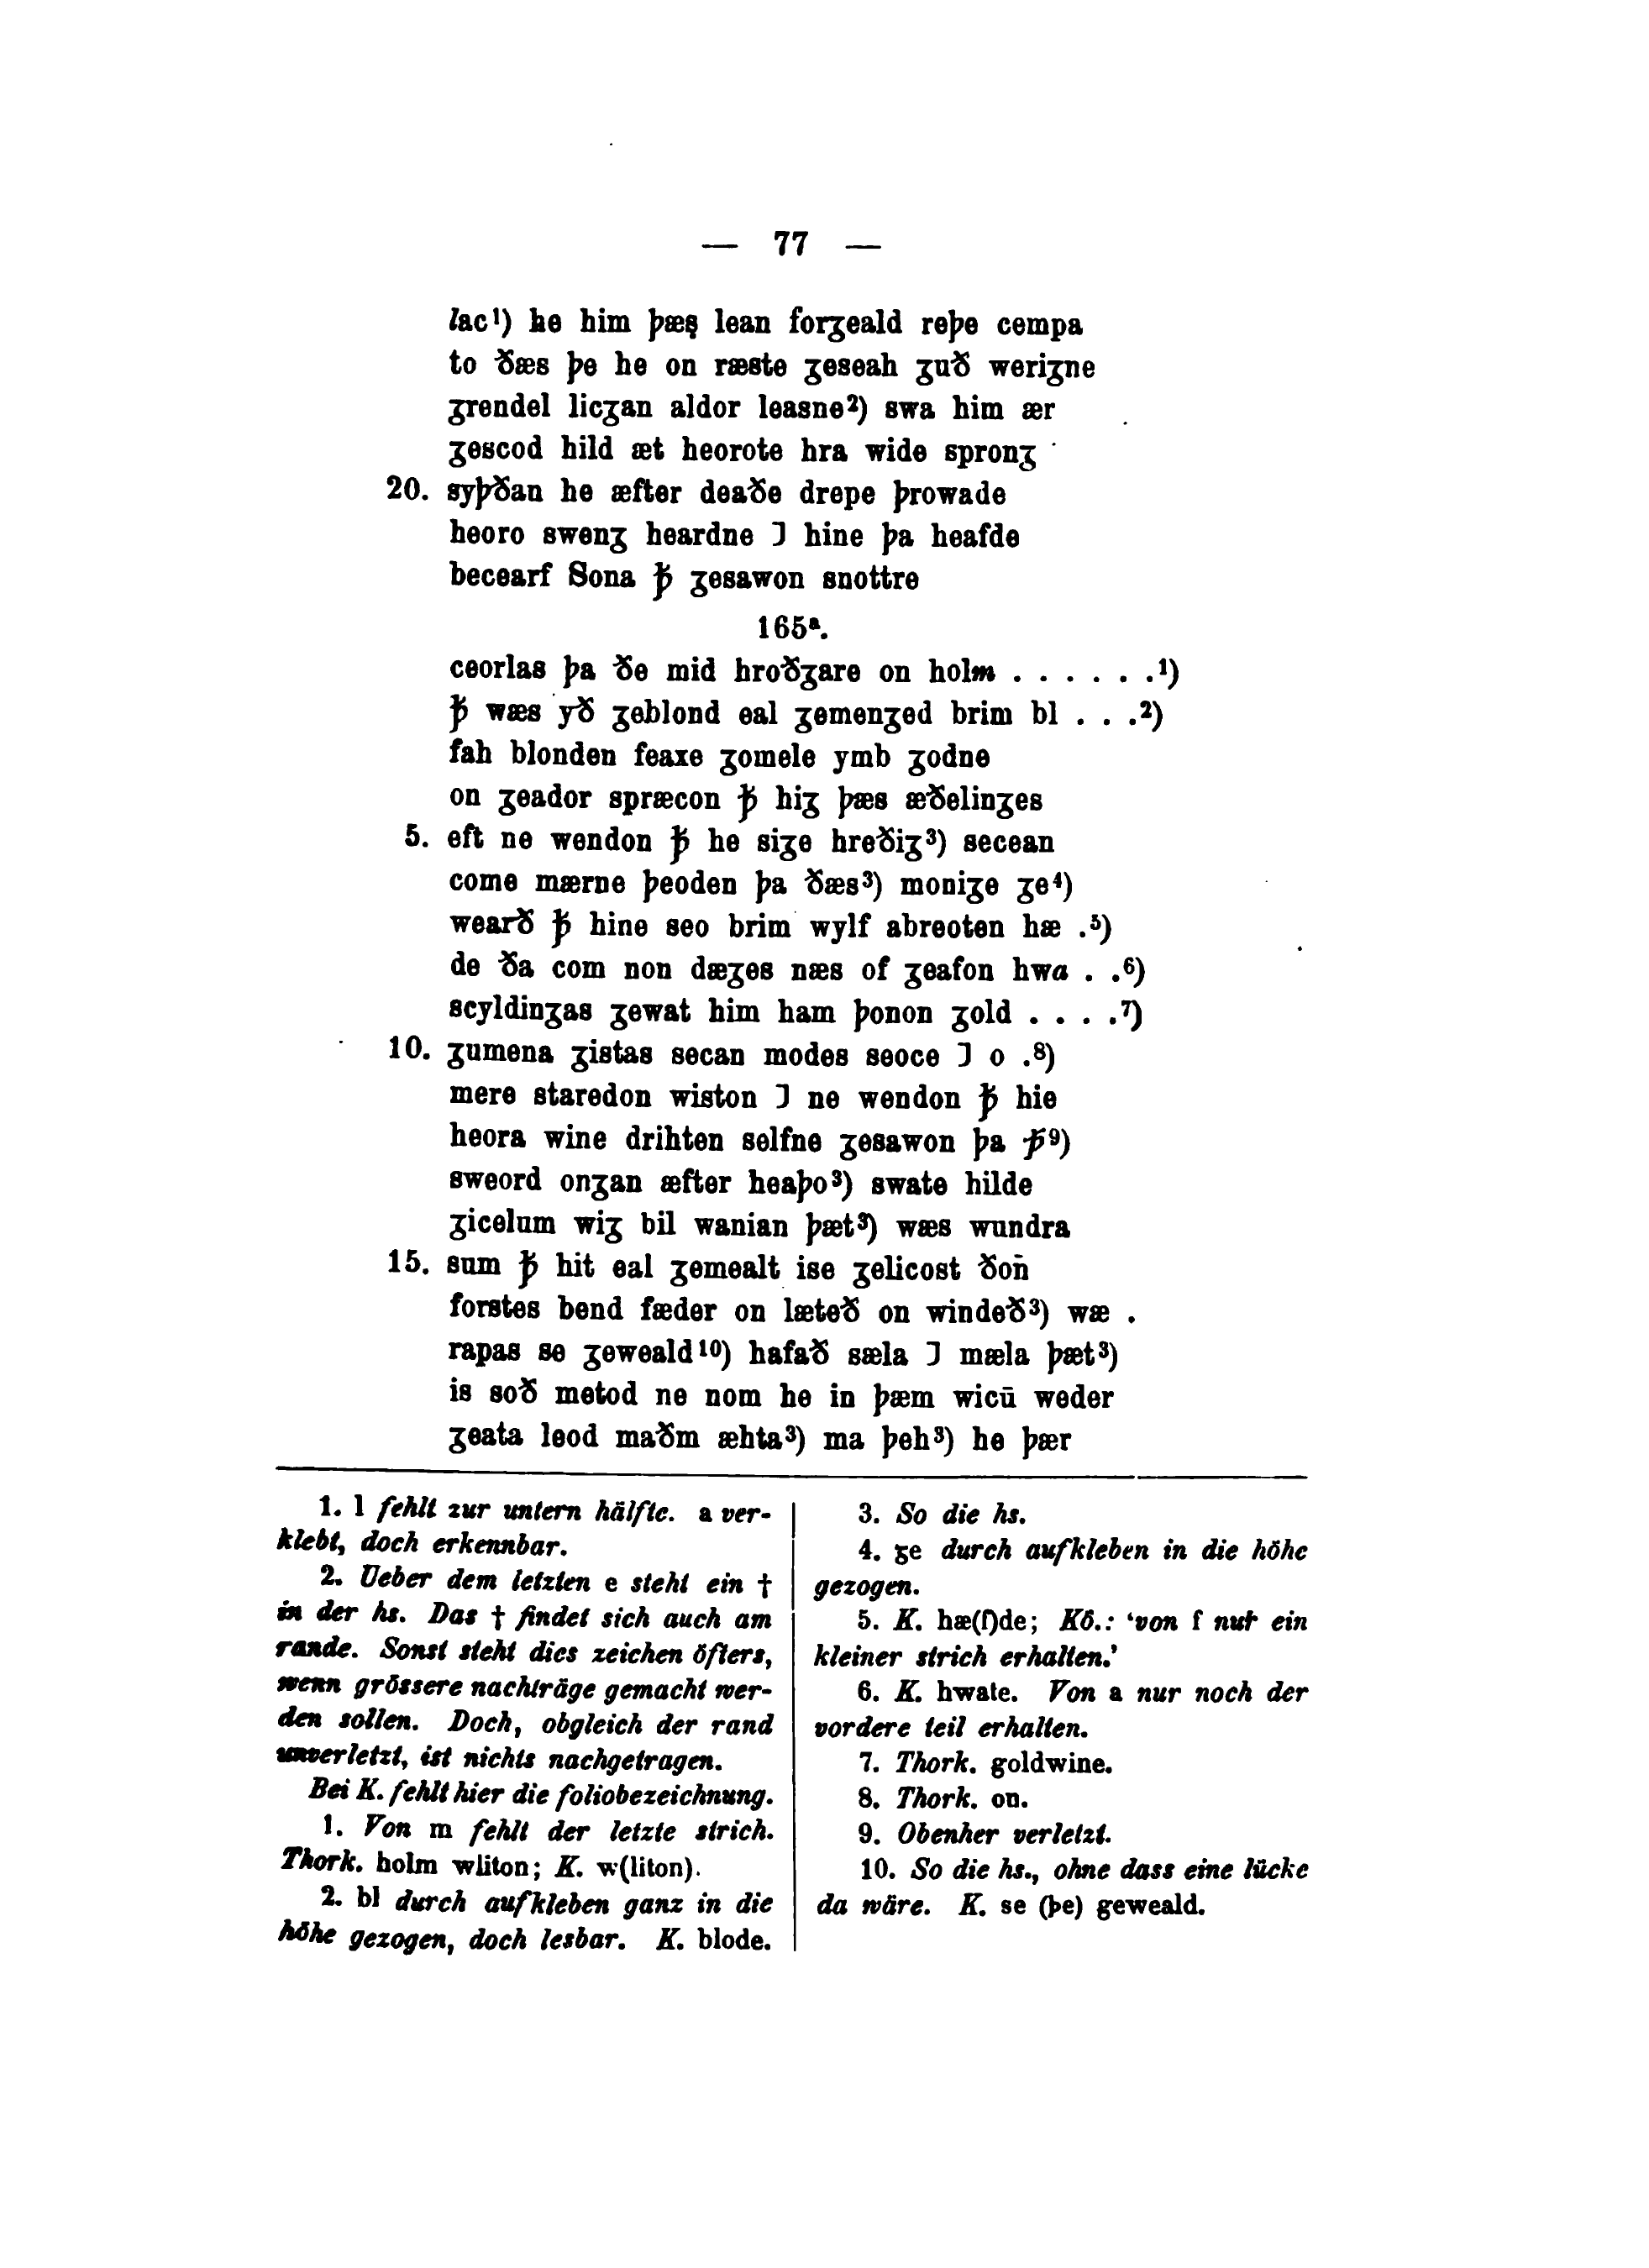 — 77 —
lac¹) he him þæs lean forȝeald reþe cempa
to ðæs þe he on ræste ȝeseah ȝuð weriȝne
ȝrendel licȝan aldor leasne²) swa him ær
ȝescod hild æt heorote hra wide spronȝ
20. syþðan he æfter deaðe drepe þrowade
heoro swenȝ heardne ⁊ hine þa heafde
becearf Sona ꝥ ȝesawon snottre
165ᵃ.
ceorlas þa ðe mid hroðȝare on holm . . . . . .¹)
ꝥ wæs yð ȝeblond eal ȝemenȝed brim bl . . .²)
fah blonden feaxe ȝomele ymb ȝodne
on ȝeador spræcon ꝥ hiȝ þæs æðelinȝes
5. eft ne wendon ꝥ he siȝe hreðiȝ³) secean
come mærne þeoden þa ðæs³) moniȝe ȝe⁴)
wearð ꝥ hine seo brim wylf abreoten hæ .⁵)
de ða com non dæȝes næs of ȝeafon hwa . .⁶)
scyldinȝas ȝewat him ham þonon ȝold . . . .⁷)
10. ȝumena ȝistas secan modes seoce ⁊ o .⁸)
mere staredon wiston ⁊ ne wendon ꝥ hie
heora wine drihten selfne ȝesawon þa ꝥ⁹)
sweord onȝan æfter heaþo³) swate hilde
ȝicelum wiȝ bil wanian þæt³) wæs wundra
15. sum ꝥ hit eal ȝemealt ise ȝelicost ðon̄
forstes bend fæder on læteð on windeð³) wæ .
rapas se ȝeweald¹⁰) hafað sæla ⁊ mæla þæt³)
is soð metod ne nom he in þæm wicū weder
ȝeata leod maðm æhta³) ma þeh³) he þær
1. l fehlt zur untern hälfte. a ver-
klebt, doch erkennbar.
2. Ueber dem letzten e steht ein †
in der hs. Das † findet sich auch am
rande. Sonst steht dies zeichen öfters,
wenn grössere nachträge gemacht wer-
den sollen. Doch, obgleich der rand
unverletzt, ist nichts nachgetragen.
Bei K. fehlt hier die foliobezeichnung.
1. Von m fehlt der letzte strich.
Thork. holm wliton; K. w(liton).
2. bl durch aufkleben ganz in die
höhe gezogen, doch lesbar. K. blode.
3. So die hs.
4. ȝe durch aufkleben in die höhe
gezogen.
5. K. hæ(f)de; Kö.: ‘von f nur ein
kleiner strich erhalten.’
6. K. hwate. Von a nur noch der
vordere teil erhalten.
7. Thork. goldwine.
8. Thork. on.
9. Obenher verletzt.
10. So die hs., ohne dass eine lücke
da wäre. K. se (þe) geweald.